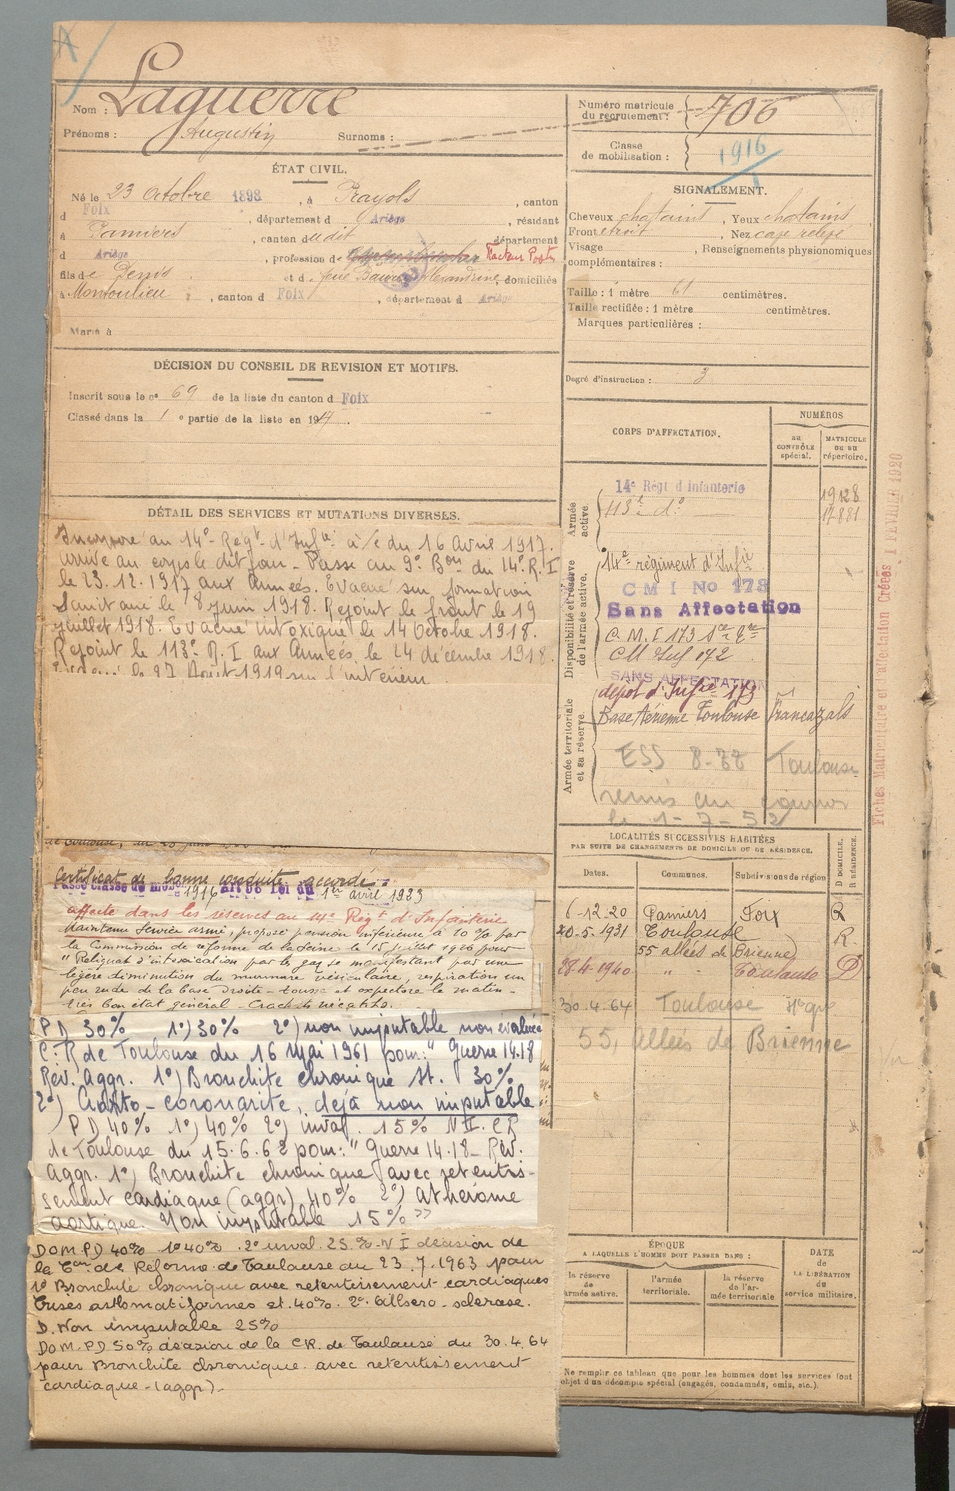 Nom : Laguerre
Prénoms : Augustin Surnoms :
Numéro matricule du recrutement : 706
Classe de mobilisation : 1916
ÉTAT CIVIL.
Né le 23 octobre 1898, à Prayols, canton
d Foix, département d Ariège, résidant
à Pamiers, canton dudit département
d Ariège, profession de Facteur Postes
fils de Denis et d feue Alexandrine, domiciliés
à Montoulieu, canton d Foix, département d Ariège
Marié à
SIGNALEMENT.
Cheveux chatains, Yeux chatains
Front étroit, Nez cave relevé
Visage , Renseignements physionomiques
complémentaires :
Taille : 1 mètre 61 centimètres.
Taille rectifiée : 1 mètre centimètres.
Marques particulières :
Degré d'instruction : 3
DÉCISION DU CONSEIL DE REVISION ET MOTIFS.
Inscrit sous le n° 69 de la liste du canton d Foix
Classé dans la 1e partie de la liste en 1917.
DÉTAIL DES SERVICES ET MUTATIONS DIVERSES.
Incorporé au 14e Régt d'Infie à/c du 16 Avril 1917.
arrivé au corps le dit jour. Passé au 9e Bon du 14e R.I
le 23.12.1917 aux Armées. Evacué sur formation
Sanitaire le 8 juin 1918. Rejoint le front le 19
juillet 1918. Evacué intoxiqué le 14 Octobre 1918.
Rejoint le 113e R.I aux Armées le 24 décembre 1918.
le 27 Août 1919 sur l'intérieur.
Certificat de bonne conduite accordé.
Passé classe de mob. 1916 art 58 Loi du 1er avril 1923
affecté dans les réserves au 14e Régt d'Infanterie
Maintenu service armé, proposé pension inférieure à 10% par
la Commission de réforme de la Seine le 15 juillet 1926 pour
"Reliquat d'intoxication par les gaz se manifestant par une
légère diminution du murmure vésiculaire, respiration un
peu rude de la base droite - tousse et expectore le matin -
très bon état général - Crachats négatifs.
PD 30% 1°) 30% 2°) non imputable non évaluée
C.R de Toulouse du 16 mai 1961 pour: "Guerre 14.18
Rév. Aggr. 1°) Bronchite chronique St. 30%
2°) Aorto - coronarite, déjà non imputable
PD 40% 1°) 40% 2°) inval. 15% N II. CR
de Toulouse du 15.6.62 pour: "Guerre 14.18 - Rév.
Aggr. 1°) Bronchite chronique avec retentis-
sement cardiaque (aggr) 40% 2°) athérome
aortique. Non imputable 15%"
DOM.PD 40% 1° 40% 2° inval. 25% N I décision de
la Con de Réforme de Toulouse du 23.7.1963 pour
1° Bronchite chronique avec retentissement cardiaques
Crises asthmatiformes et. 40%. 2° Athero-sclerose.
D. Non imputable 25%
DOM.PD 50% décision de la C.R. de Toulouse du 30.4.64
pour Bronchite chronique avec retentissement
cardiaque - (aggr) -
CORPS D'AFFECTATION.
NUMÉROS
au CONTRÔLE spécial.
MATRICULE ou au répertoire.
Armée active.
14e Régt d'infanterie 19128
113e do 17881
Disponibilité et réserve de l'armée active.
14e régiment d'Infie
C M I No 173
Sans Affectation
C.M.I 173
CM Inf 172
SANS AFFECTATION
Armée territoriale et sa réserve.
dépôt d'Infie 173
Base Aérienne Toulouse Francazals
ESS Toulouse
remis au
le 1-7-52
Fiches Matriculaire et affectation Créées 1 FEVRIER 1920
LOCALITÉS SUCCESSIVES HABITÉES
PAR SUITE DE CHANGEMENTS DE DOMICILE OU DE RÉSIDENCE.
Dates. Communes. Subdivisions de région D DOMICILE. R RÉSIDENCE.
6-12-20 Pamiers Foix R
20-5-1931 Toulouse R.
55 allées de Brienne
28-4-1940 " Toulouse D
30.4.64 Toulouse
55, Allées de Brienne
ÉPOQUE
A LAQUELLE L'HOMME DOIT PASSER DANS :
la réserve de l'armée active.
l'armée territoriale.
la réserve de l'armée territoriale
DATE de LA LIBÉRATION du service militaire.
Ne remplir ce tableau que pour les hommes dont les services font
objet d'un décompte spécial (engagés, condamnés, omis, etc.).